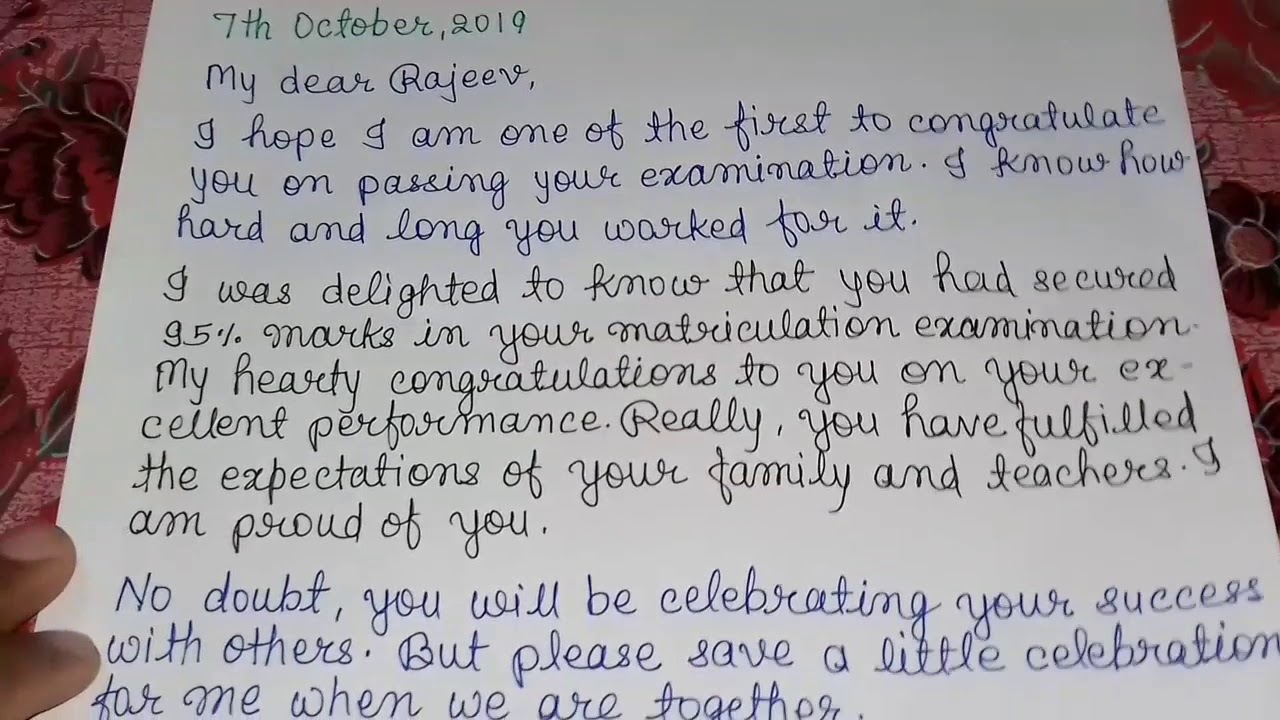 7th October, 2019
My dear Rajeev,
I hope I am one of the first to congratulate
you on passing your examination. I know how
hard and long you worked for it.
I was delighted to know that you had secured
95% marks in your matriculation examination.
My hearty congratulations to you on your ex-
cellent performance. Really, you have fulfilled
the expectations of your family and teachers. I
am proud of you.
No doubt, you will be celebrating your success
with others. But please save a little celebration
for me when we are together.